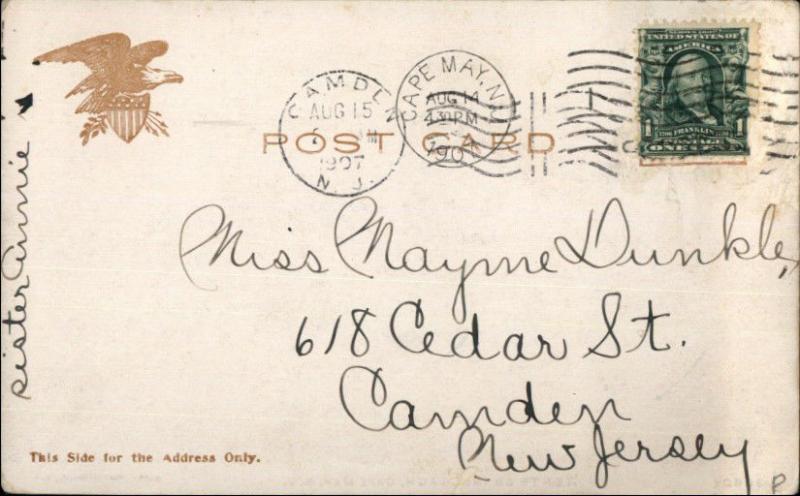 CAMDEN
AUG 15
1907
N. J.
CAPE MAY, N.J.
AUG 14
430 PM
190
SERIES 1902
UNITED STATES OF
AMERICA
1 FRANKLIN 1
POSTAGE
ONE CENT
POST CARD
sister Annie
Miss Mayme Dunkle,
618 Cedar St.
Camden
New Jersey
This Side for the Address Only.